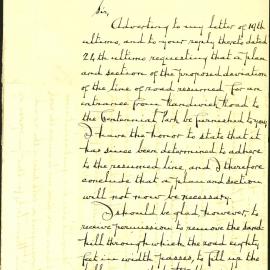 Sir,
Adverting to my letter of 19th
ultimo, and to your reply thereto dated
24th ultimo requesting that a plan
and section of the proposed deviation
of the line of road resumed for an
entrance from Randwick Road to
the Centennial Park be furnished to you,
I have the honor to state that it
has since been determined to adhere
to the resumed line, and I therefore
conclude that a plan and section
will not now be necessary.
I should be glad, however, to
receive permission to remove the sand
hill through which the road eighty
feet in width passes, to fill up the